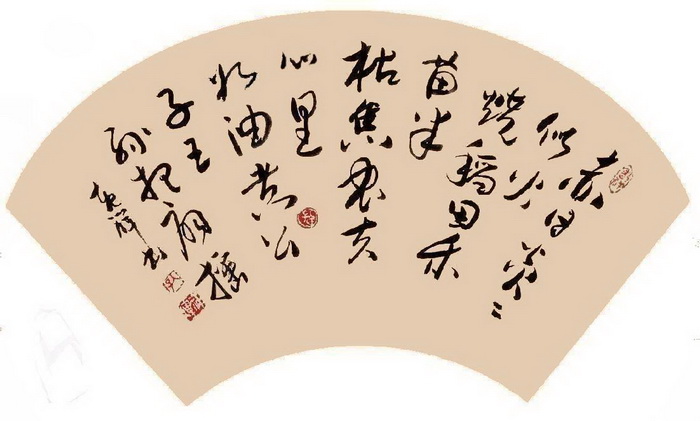 赤日炎々
似火
燒稻田禾
苗半
枯焦农夫
心里
如油煮公
子王
孙把扇摇
祥书